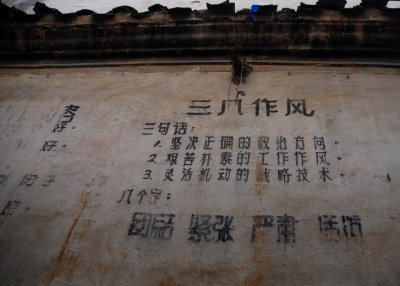 好。
好。
好。
三八作风
三句话:
1. 坚决正确的政治方向。
2. 艰苦朴素的工作作风。
3. 灵活机动的战略技术。
八个字:
团结 紧张 严肃 活泼